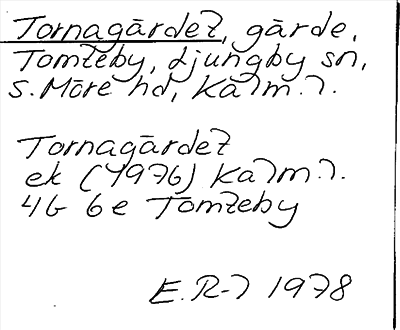 Tornagärdet, gärde,
Tomteby, Ljungby sn,
S. Möre hd, Kalm. l.
Tornagärdet
ek (1976) Kalm. l.
4G 6e Tomteby
E. R-l 1978